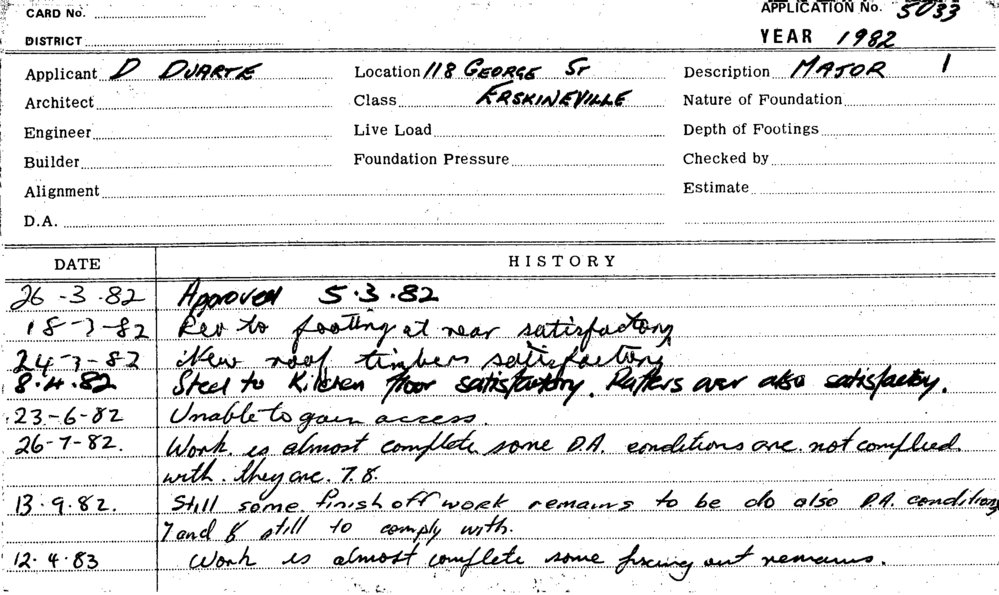 CARD No.
APPLICATION No. 5033
DISTRICT
YEAR 1982
Applicant D DUARTE Location 118 GEORGE ST Description MAJOR 1
Architect Class ERSKINEVILLE Nature of Foundation
Engineer Live Load Depth of Footings
Builder Foundation Pressure Checked by
Alignment Estimate
D.A.
DATE HISTORY
26-3.82 Approved 5.3.82
18-3-82 to footing at rear satisfactory
24-3-82 New roof timbers satisfactory
8.4.82 Steel to Kitchen floor satisfactory. Rafters over also satisfactory.
23-6-82 Unable to gain access.
26-7-82. Work is almost complete some D.A. conditions are not complied
with. they are. 7.8.
13.9.82. Still some finish off work remains to be do also D.A. conditions
7 and 8 still to comply with.
12.4.83 Work is almost complete some out remains.